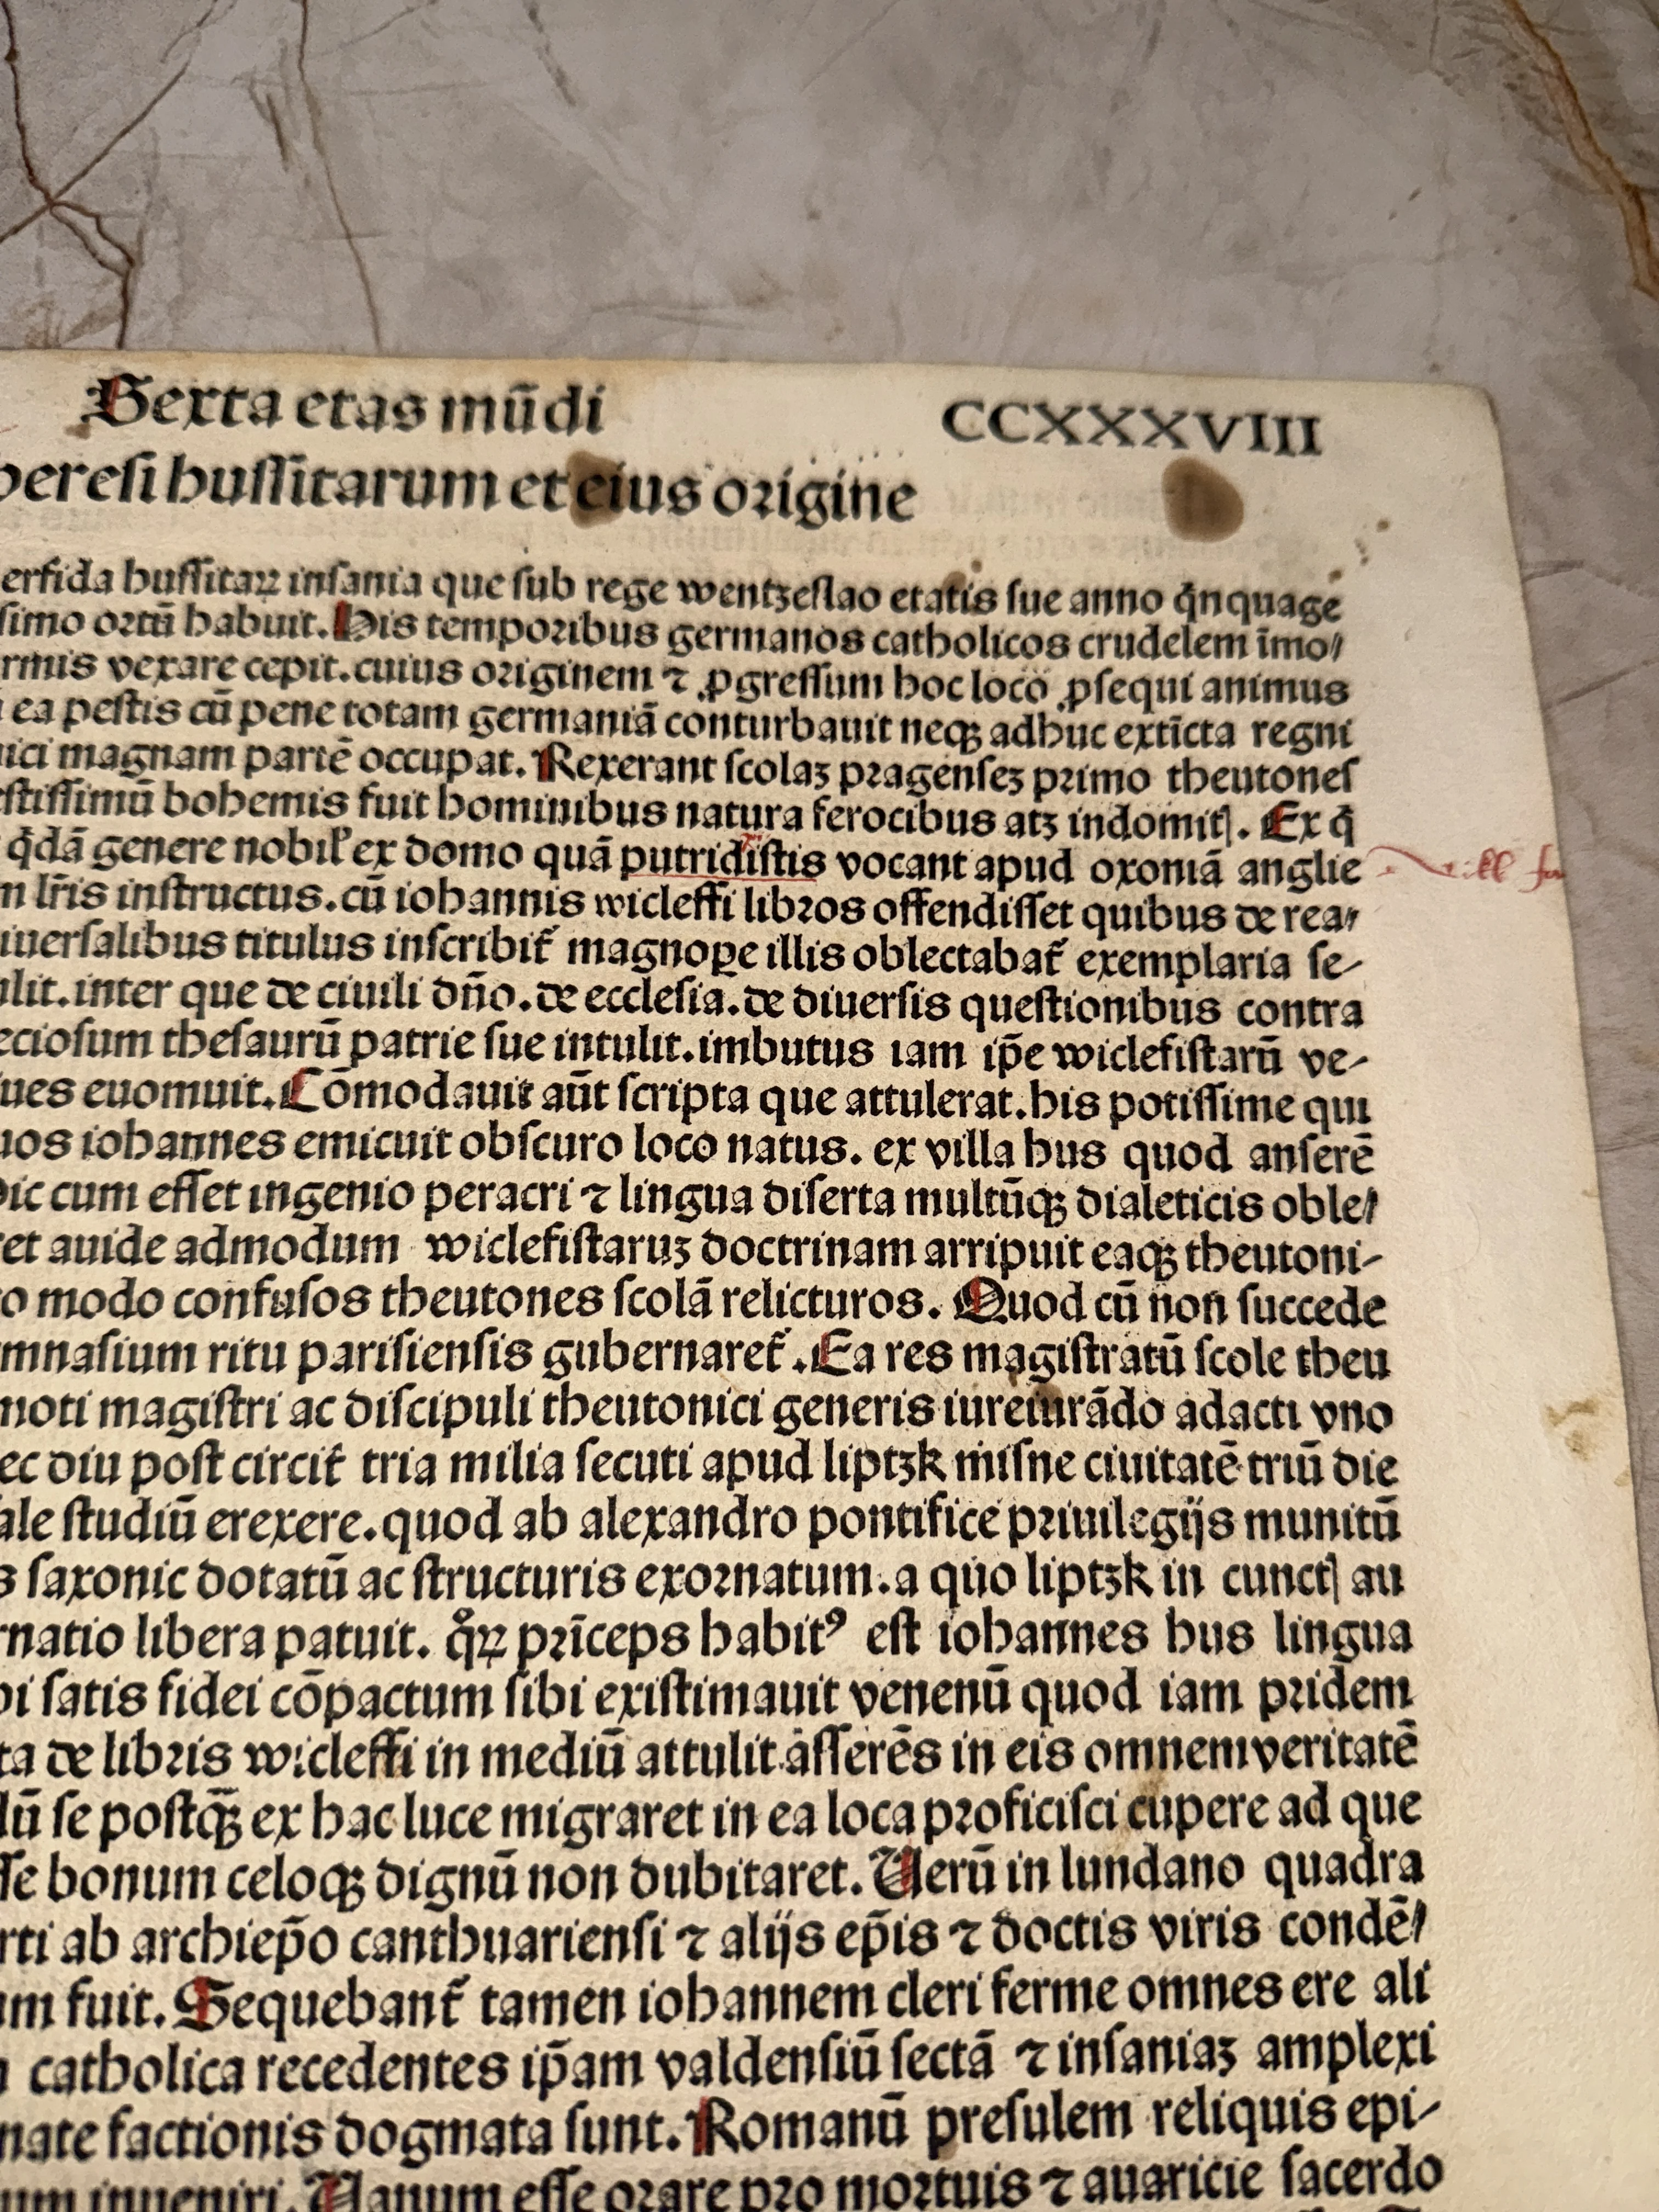 Sexta etas mūdi
CCXXXVIII
heresi hussitarum et eius origine
erfida hussitaꝝ insania que sub rege wentzeslao etatis sue anno q̄nquage
simo ortū habuit. His temporibus germanos catholicos crudelem īmo/
rmis vexare cepit. cuius originem ⁊ ꝓgressum hoc loco ꝓsequi animus
ea pestis cū pene totam germaniā conturbauit neqꝫ adhuc extīcta regni
ici magnam partē occupat. Rexerant scolaꝫ pragenseꝫ primo theutones
stissimū bohemis fuit hominibus natura ferocibus atꝫ indomitꝭ. Ex q̄
q̄dā genere nobil' ex domo quā putridistis vocant apud oxoniā anglie
m lr̄is instructus. cū iohannis wicleffi libros offendisset quibus de rea/
iuersalibus titulus inscribit᷑ magnoꝑe illis oblectabat᷑ exemplaria se-
ulit. inter que de ciuili dn̄o. de ecclesia. de diuersis questionibus contra
eciosum thesaurū patrie sue intulit. imbutus iam ip̄e wiclefistarū ve-
ues euomuit. Cōmodauit aūt scripta que attulerat. his potissime qui
uos iohannes emicuit obscuro loco natus. ex villa hus quod anserē
hic cum esset ingenio peracri ⁊ lingua diserta multūqꝫ dialeticis oble/
et auide admodum wiclefistaruꝫ doctrinam arripuit eaqꝫ theutoni-
o modo confusos theutones scolā relicturos. Quod cū non succede
mnasium ritu parisiensis gubernaret᷑. Ea res magistratū scole theu
moti magistri ac discipuli theutonici generis iureiurādo adacti vno
ec diu post circit᷑ tria milia secuti apud liptzk misne ciuitatē triū die
ale studiū erexere. quod ab alexandro pontifice priuilegijs munitū
s saxonic dotatū ac structuris exornatum. a quo liptzk in cunctꝭ au
rnatio libera patuit. qͦꝝ prīceps habitꝰ est iohannes hus lingua
bi satis fidei cōpactum sibi existimauit venenū quod iam pridem
ta de libris wicleffi in mediū attulit asserēs in eis omnem veritatē
dū se postqꝫ̄ ex hac luce migraret in ea loca proficisci cupere ad que
sse bonum celoqꝫ dignū non dubitaret. Uerū in lundano quadra
rti ab archiep̄o canthuariensi ⁊ alijs ep̄is ⁊ doctis viris condē/
um fuit. Sequebant᷑ tamen iohannem cleri ferme omnes ere ali
catholica recedentes ip̄am valdensiū sectā ⁊ insaniaꝫ amplexi
nate factionis dogmata sunt. Romanū presulem reliquis epi-
um inueniri. Uanum esse orare pro mortuis ⁊ auaricie sacerdo